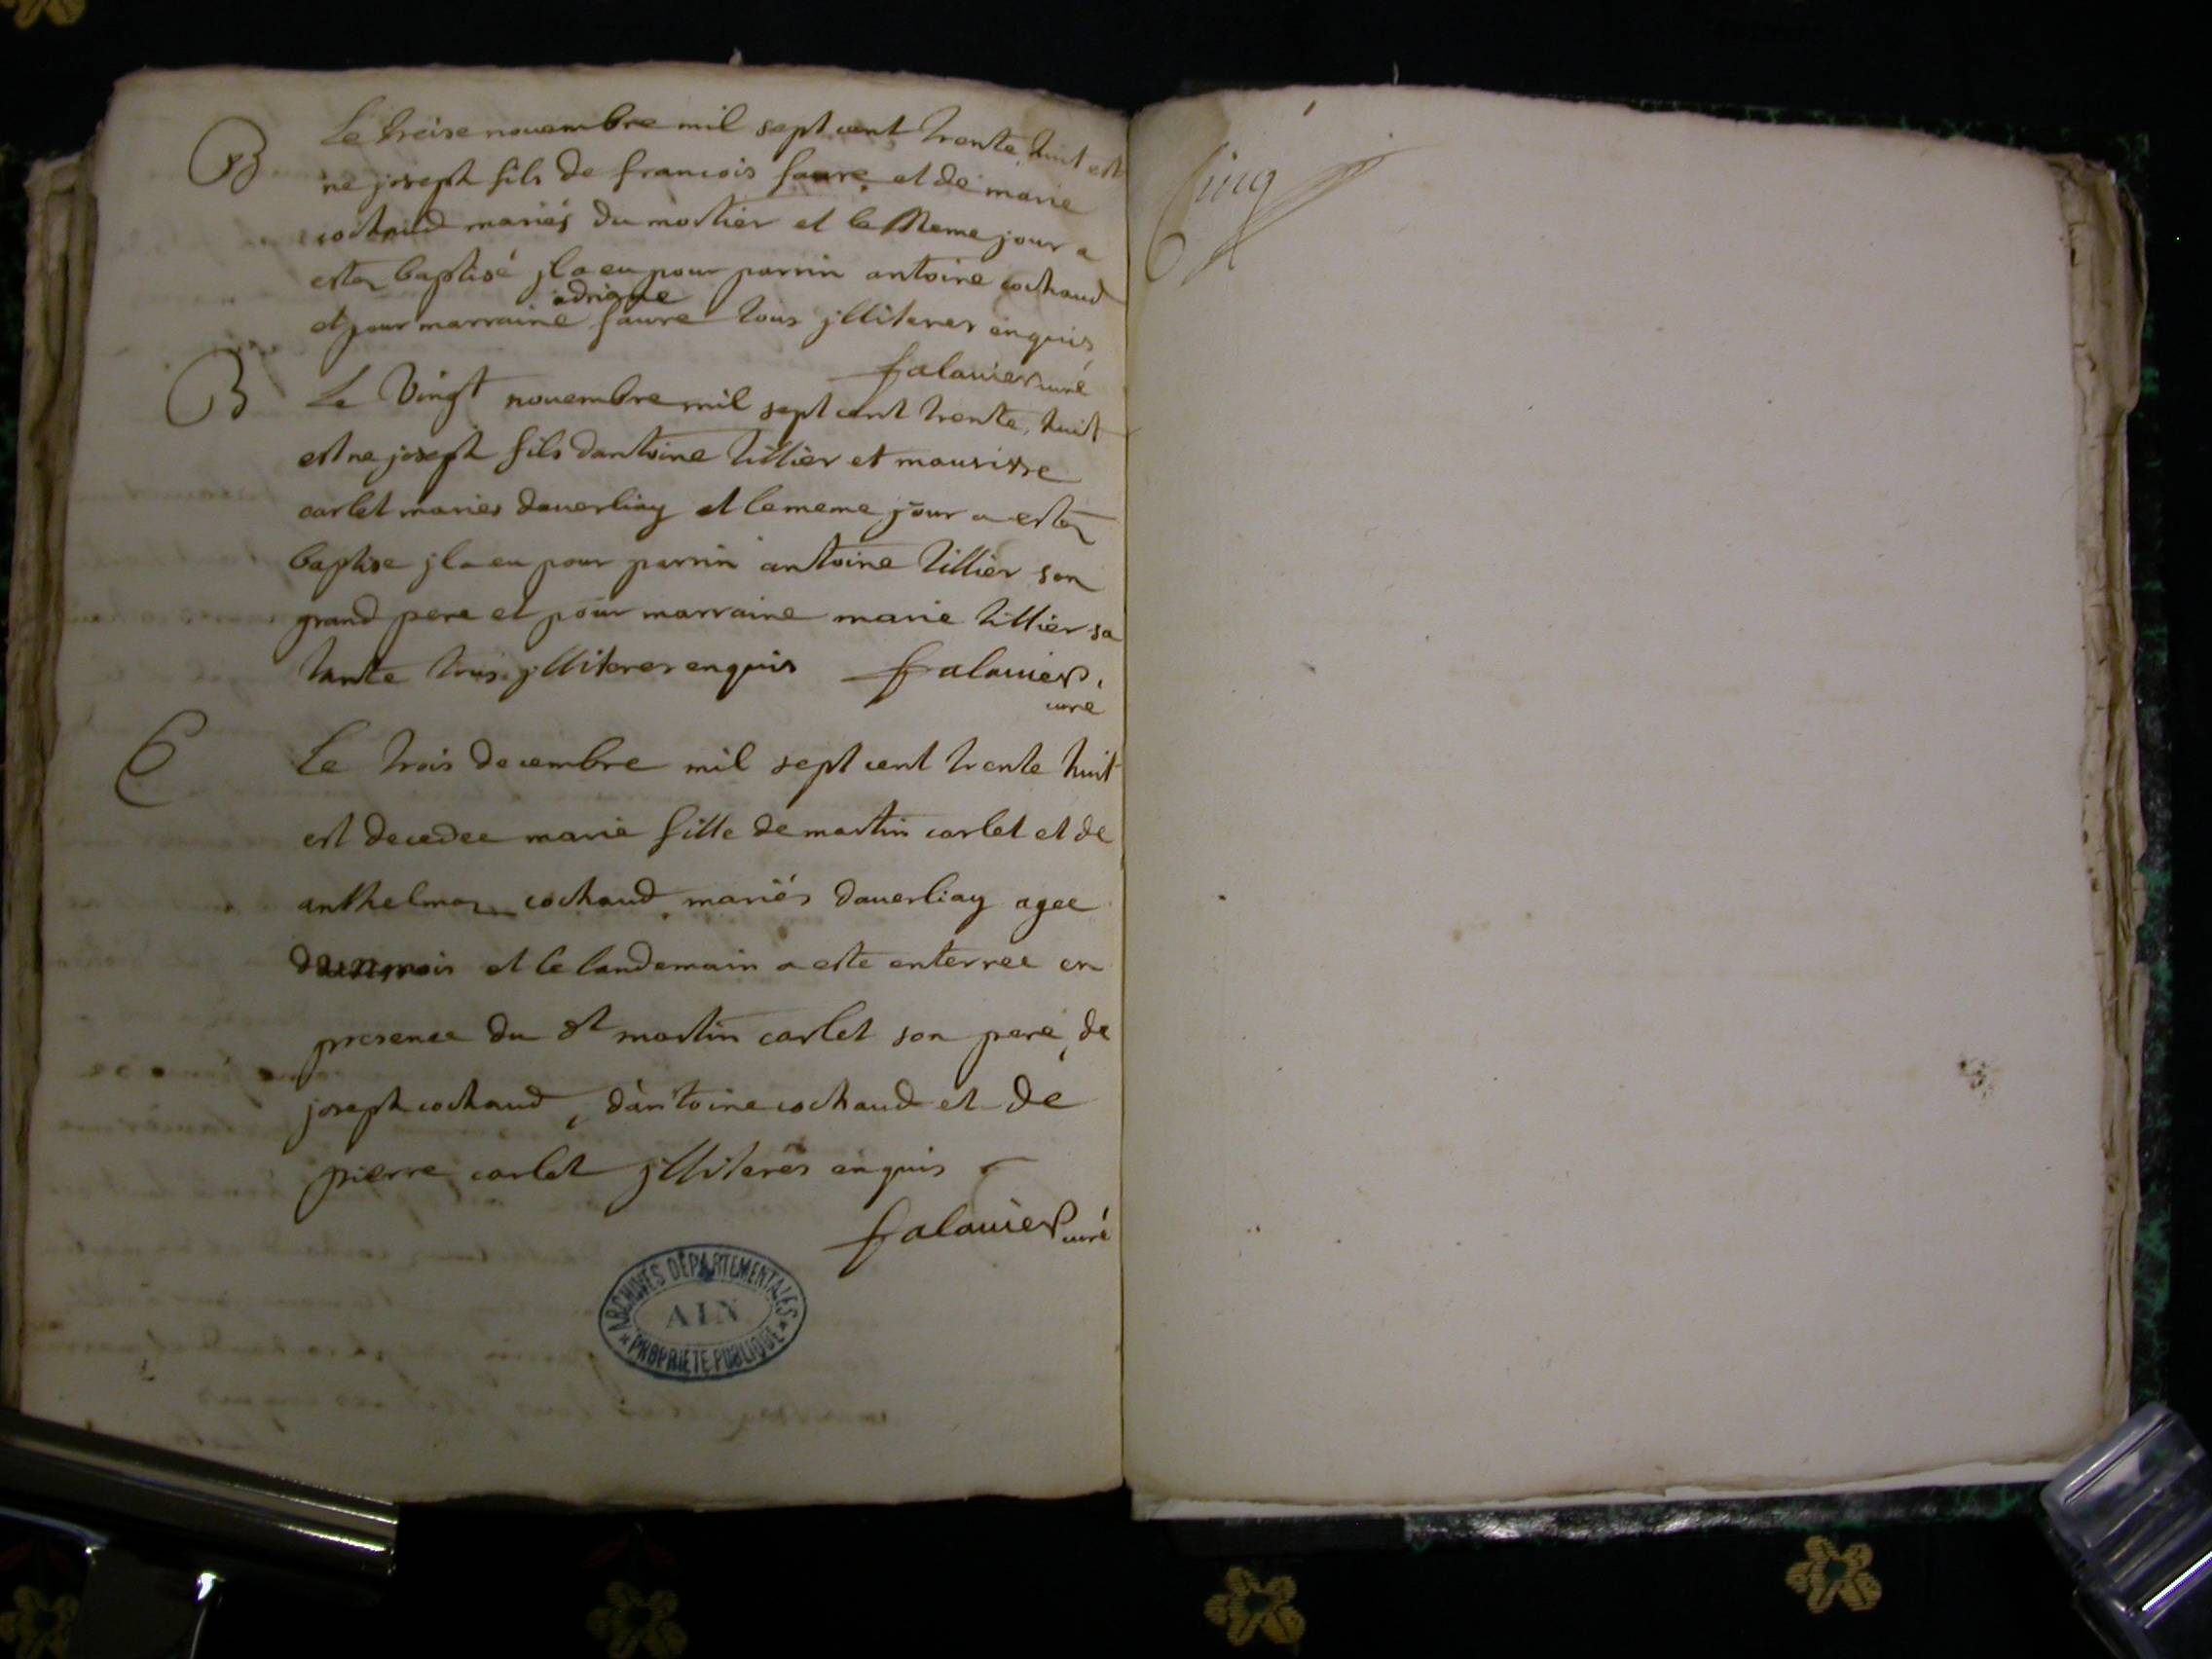 B
Le treise novembre mil sept cent trente huit est
ne joseph fils de francois favre et de marie
cochaud mariés du mostier et le Meme jour a
estez baptisé jl a eu pour parrin antoine cochaud
et pour marraine adriane favre tous jlliteres enquis
falavier curé
B
Le Vingt novembre mil sept cent trente huit
est ne joseph fils dantoine tillier et maurisse
carlet maries daverliay et le meme jour a estez
baptise jl a eu pour parrin antoine tillier son
grand pere et pour marraine marie tillier sa
tante tous jlliteres enquis falavier
curé
E
Le trois decembre mil sept cent trente huit
est decedee marie fille de martin carlet et de
anthelmaz cochaud mariés daverliay agee
dun mois et le landemain a este enterree en
presence du dt martin carlet son pere, de
joseph cochaud, dantoine cochaud et de
pierre carlet jlliterés enquis
falavier curé
ARCHIVES DÉPARTEMENTALES
AIN
* PROPRIETE PUBLIQUE *
Cinq